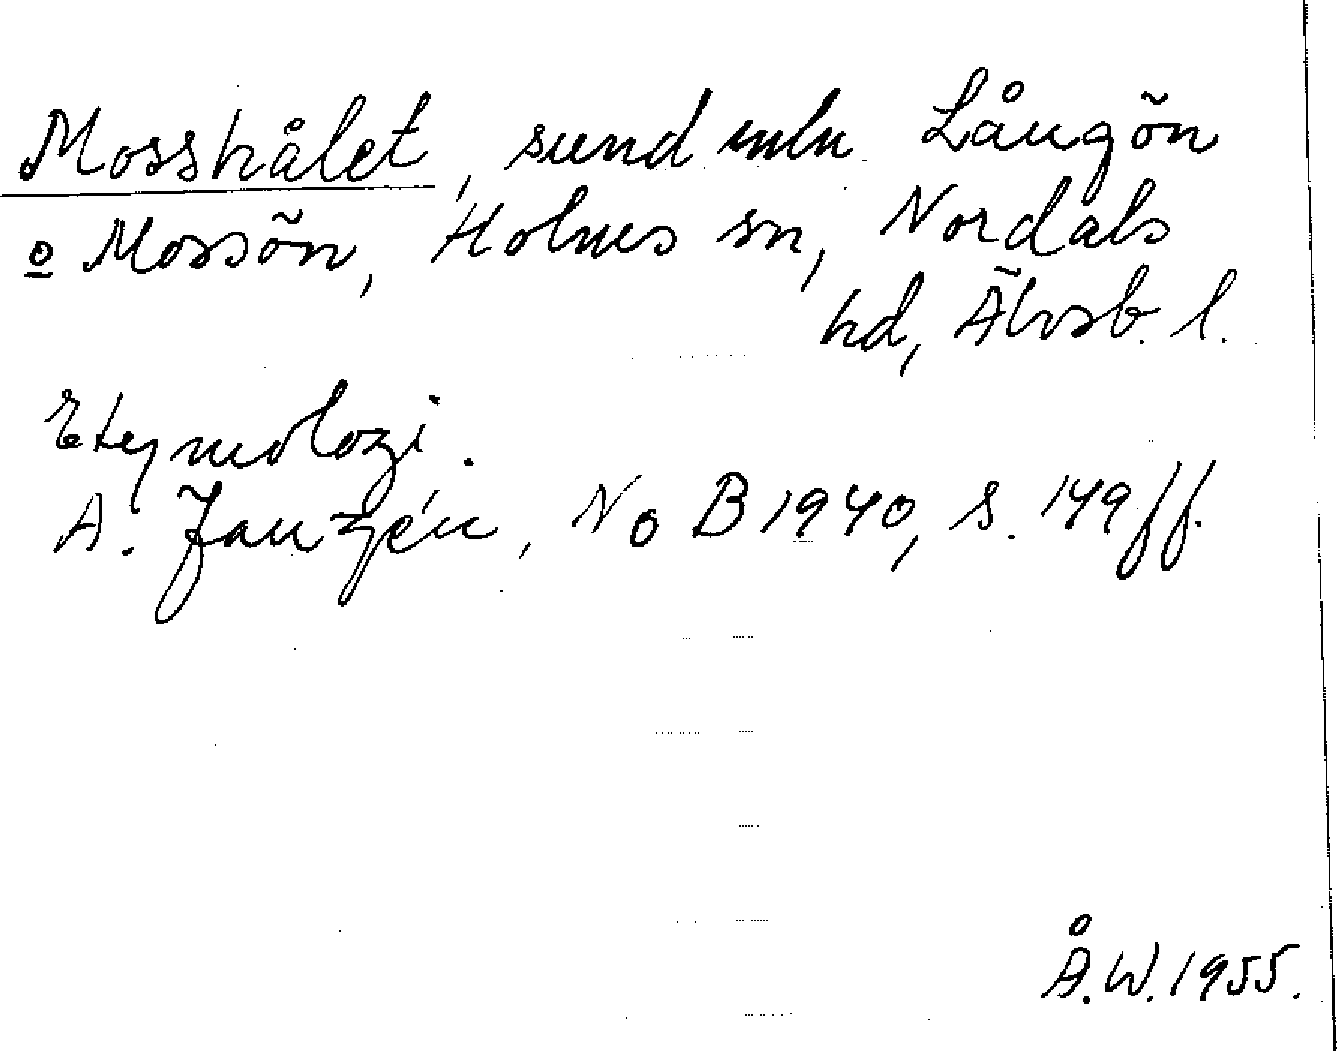 Mosshålet, sund mln Långön
o Mossön, Holms sn, Nordals
hd, Älvsb. l.
Etymologi.
A. Janzén, NoB 1940, s. 149 ff.
Å.W. 1955.